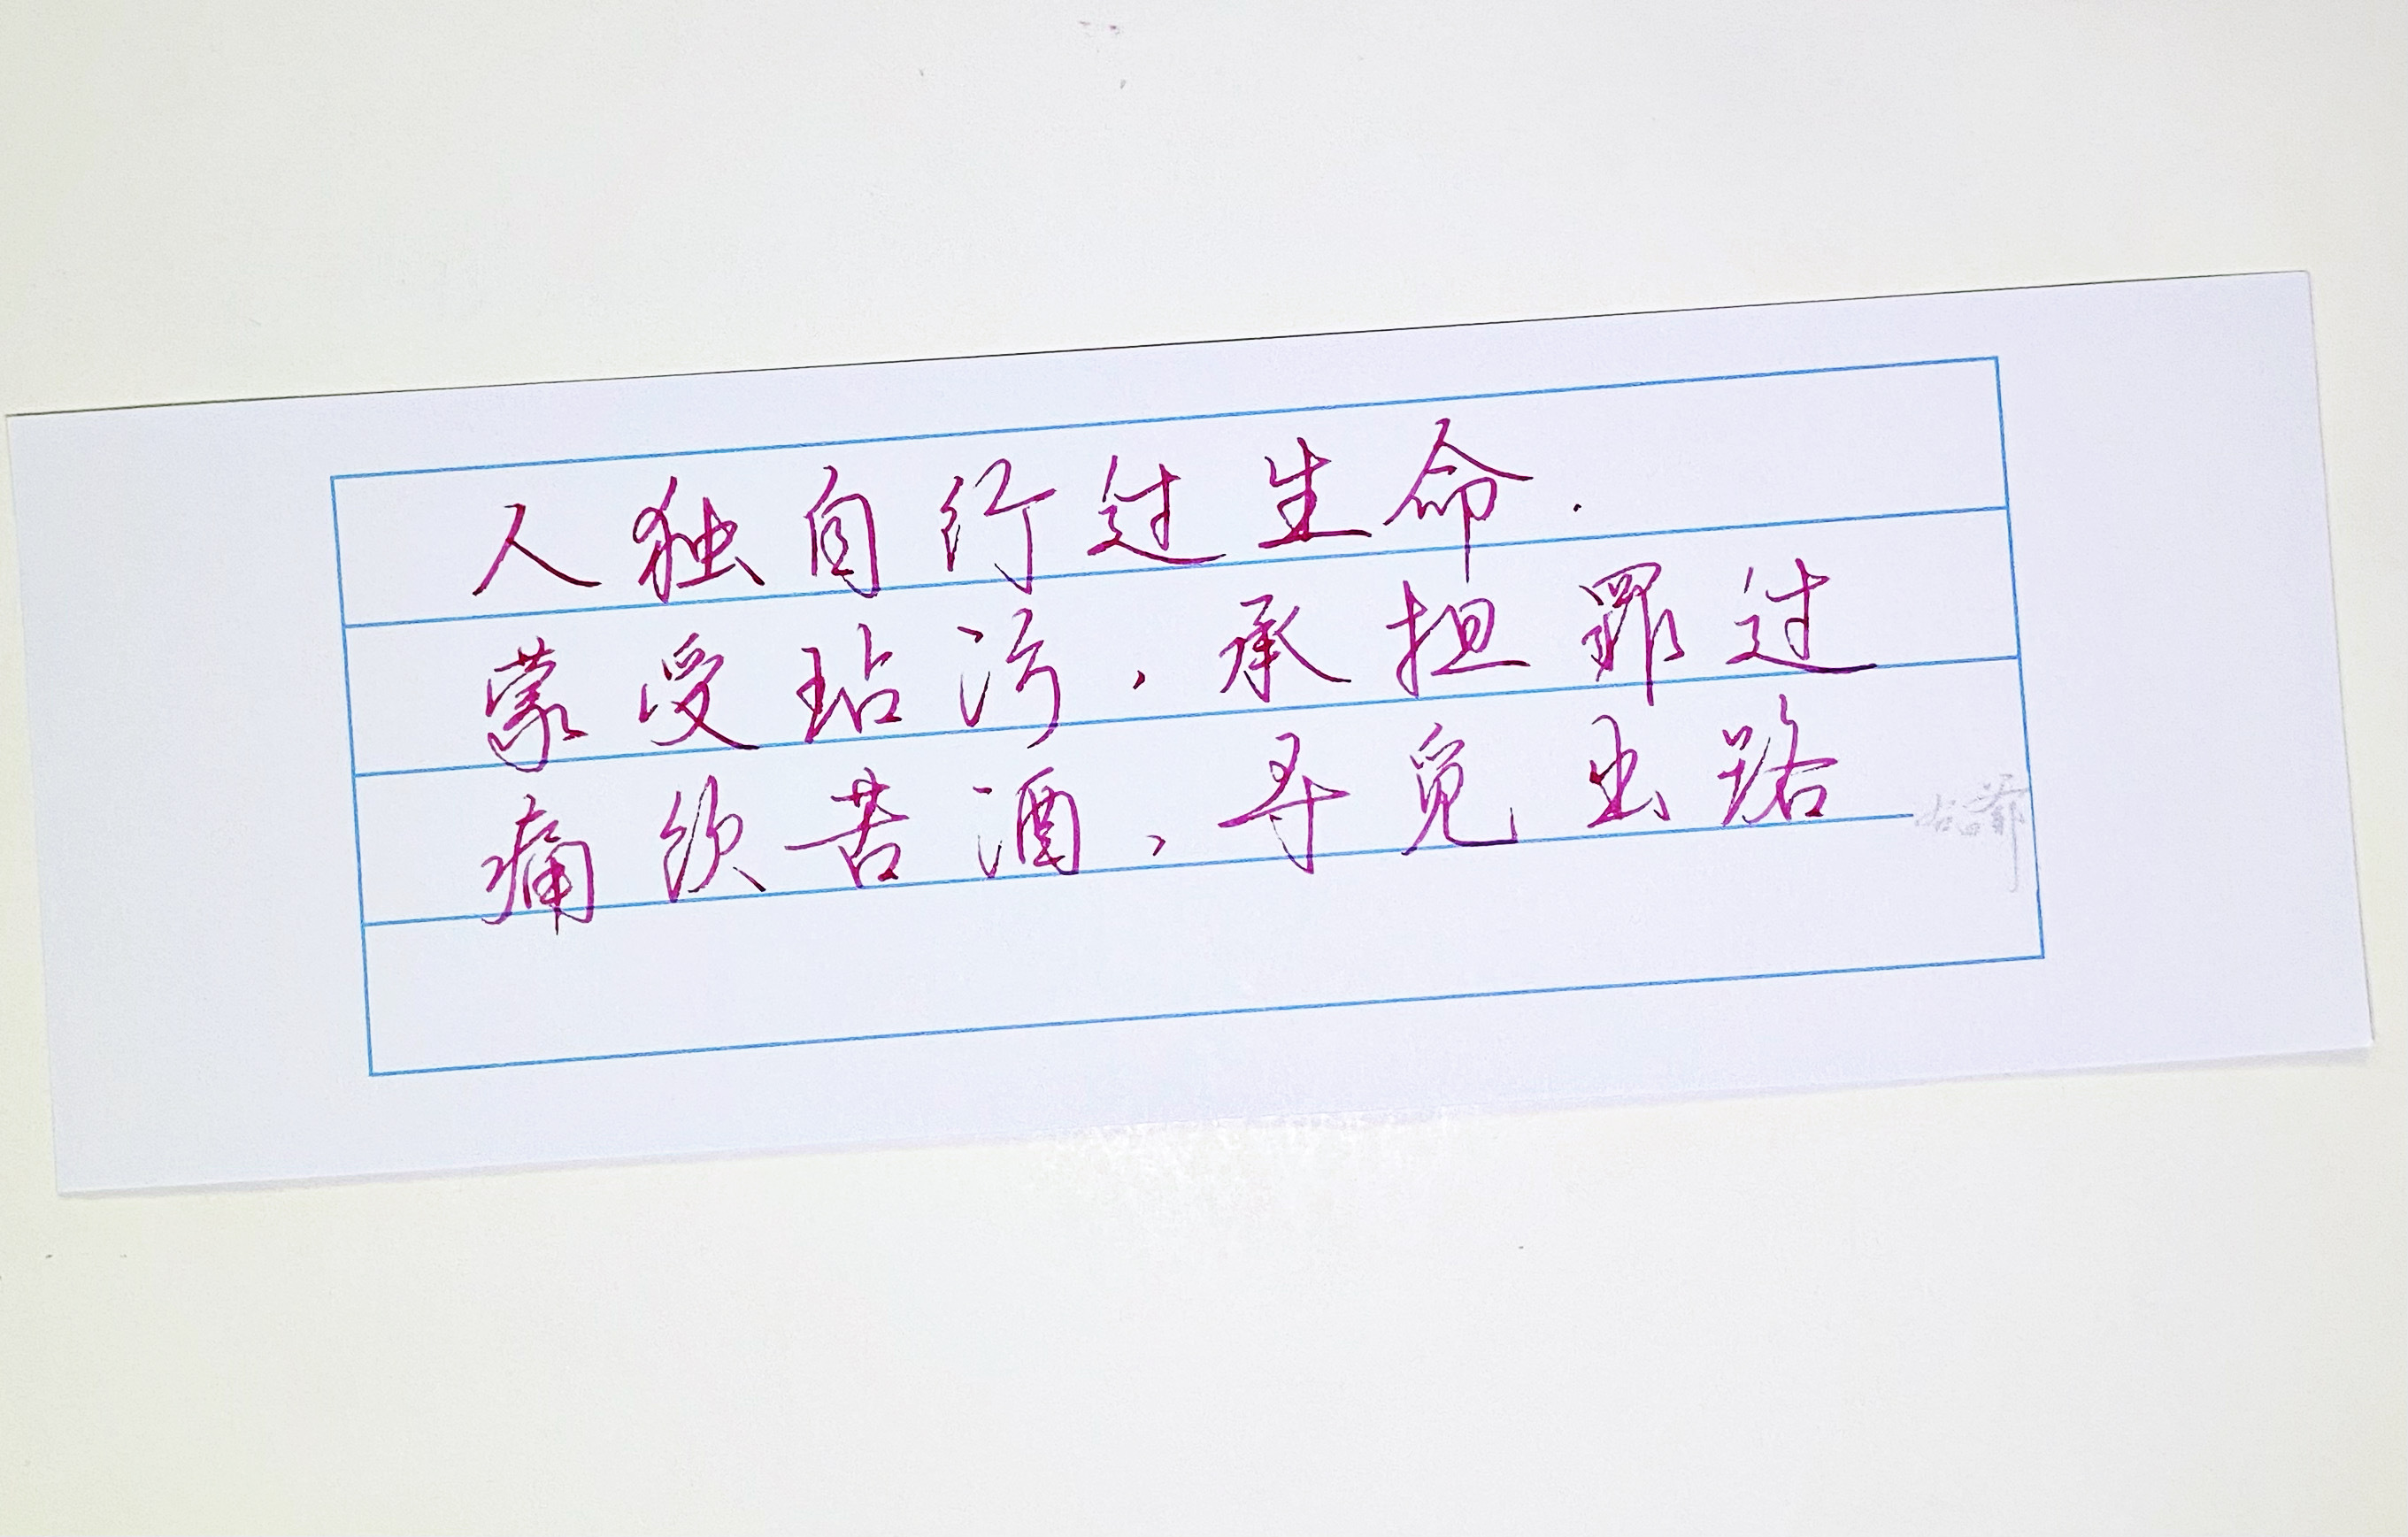 人独自行过生命.
蒙受玷污,承担罪过
痛饮苦酒,寻觅出路